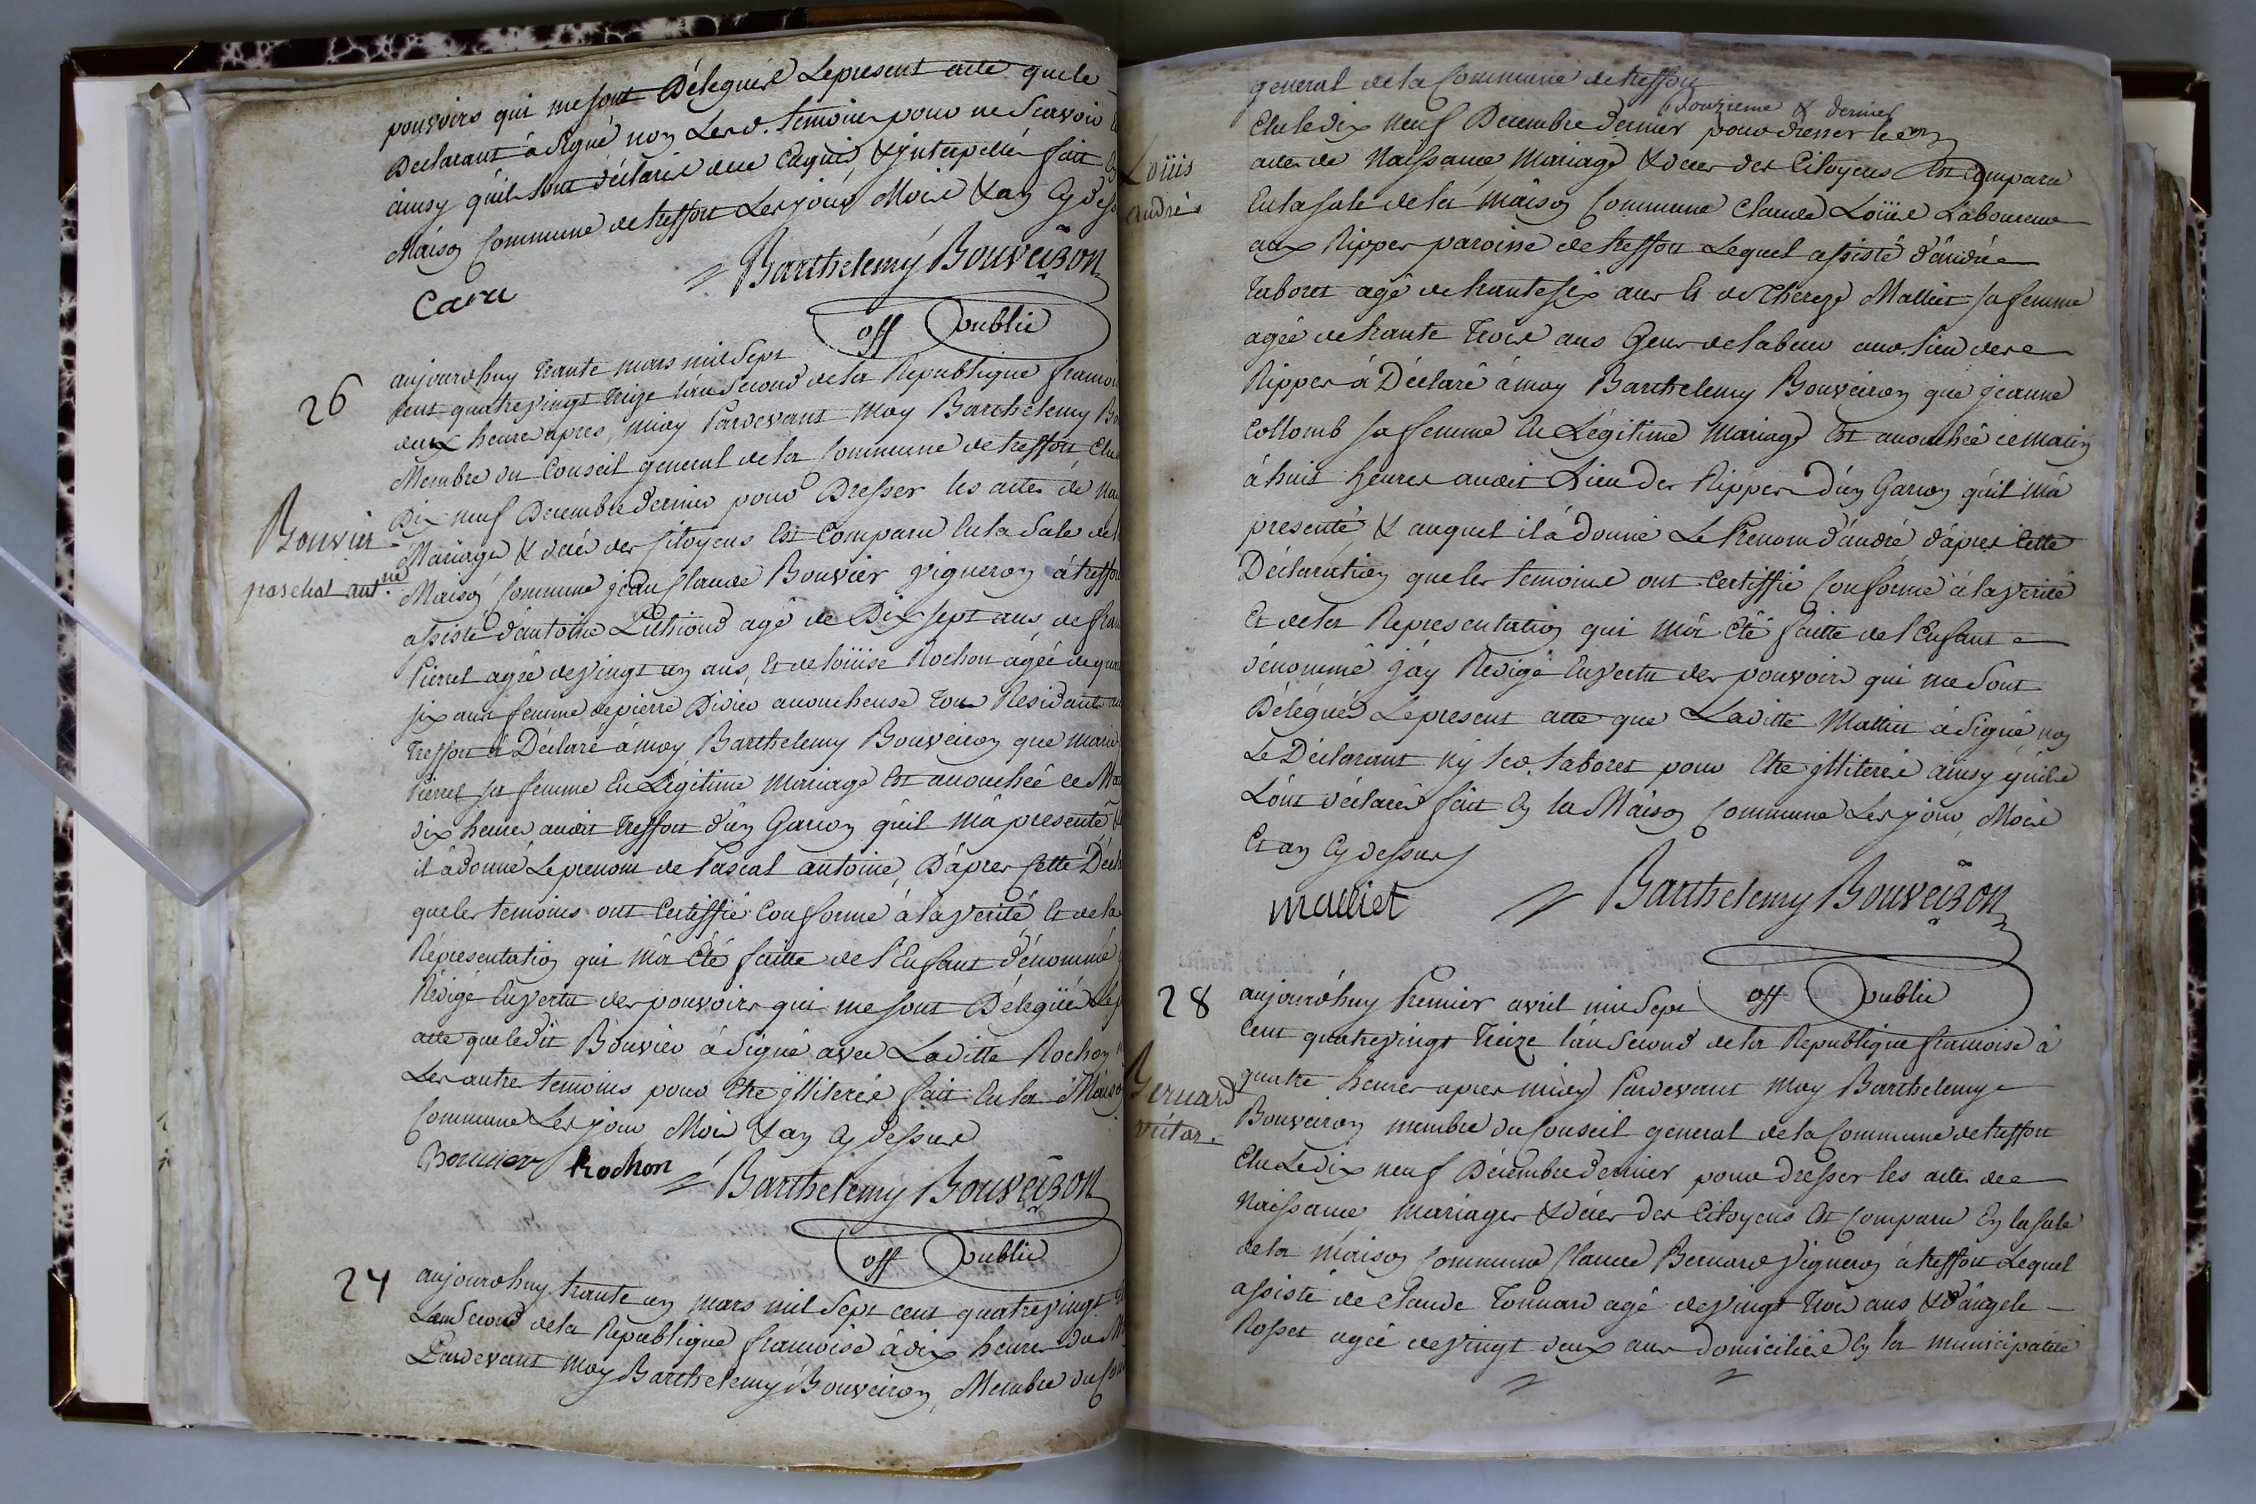 pouvoirs qui me sont Délegués Le present acte que le
Declarant à Signé non Lesd. temoins pour ne Scavoir
ainsy quils l'ont déclaré de ce Enquis & interpellés fait
Maison Commune de treffort Les jour Mois & an Cy dess
Caru
Barthelemy Bouveiron
off public
26
aujourdhuy trante mars mil Sept
cent quatrevingt treize l'an Second de la Republique francoi
deux heure apres midy Pardevant moy Barthelemy Bo
Membre du Conseil general de la Commune de treffort Elu
Dix neuf Decembre dernier pour Dresser les actes de nai
Bouvier
Mariage & décé des Citoyens Est Comparu En la Sale de l
paschal ant.ne
Maison Commune jean Claude Bouvier vigneron à treffort
assisté d'antoine Luthioud agé de Dix sept ans, de
Pierret agée de vingt un ans, Et de loüise Rochon agée de quar
six ans femme de pierre Didier acoucheuse tous Residants
Treffort à Déclaré à moy Barthelemy Bouveiron que marie
Pierret sa femme En Légitime mariage Est acouchée ce Ma
dix heure audit treffort d'un Garcon qu'il m'a presenté
il à donné Le prenom de Pascal antoine, D'apres Cette Décla
que les temoins ont Certiffié Conforme à la verité, Et de la
Répresentation qui m'a Eté faitte de l'Enfant dénommé
Rédigé En vertu des pouvoirs qui me sont Délegüé Le p
acte que ledit Bouvier à Signé avec Laditte Rochon
Les autre temoins pour Etre jlliteré fait En la Maison
Commune Les jour Mois & an Cy dessus
Bouvier Rochon Barthelemy Bouveiron
off public
27
aujourdhuy trante un mars mil Sept cent quatrevingt
L'an Second de la Republique francoise à dix heure du M
Pardevant moy Barthelemy Bouveiron, Membre du Con
general de la Commune de treffort
douzieme & dernier
Elu le dix neuf Decembre dernier pour dresser les
Loüis
actes de Naissance, Mariage & décès des Citoyens Est Comparu
andré
En la sale de la Maison Commune Claude Loüis Laboureur
aux Rippes paroisse de treffort Lequel assisté d'andré
Taboret agé de trante six ans Et de Thereze Malliet sa femme
agée de trante Trois ans Gens de labeur aud. lieu des
Rippes à Déclaré à moy Barthelemy Bouveiron que jeanne
Collomb sa femme En Légitime Mariage Est acouchée ce matin
à huit heures audit Lieu des Rippes d'un Garcon qu'il m'a
presenté & auquel il à donné Le Prenom d'andré d'apres Cette
Déclaration que les temoins ont Certiffié Conforme à la verité
Et de la Representation qui m'a Eté faitte de l'Enfant
dénommé j'ay Redigé En vertu des pouvoirs qui me Sont
Délégués Le present acte que Laditte Malliet à Signé non
Le Déclarant ny led. taboret pour Etre jlliteré ainsy qu'ils
L'ont déclaré fait En la Maison Commune Les jour, Mois
Et an Cy dessus
malliet Barthelemy Bouveiron
off public
28
aujourdhuy Premier avril mil Sept
cent quatrevingt treize l'an Second de la Republique francoise à
quatre heures apres midy Pardevant moy Barthelemy
Bernard
Bouveiron membre du Conseil general de la Commune de treffort
victor.
Elu Le dix neuf Décembre dernier pour dresser les actes de
Naissance mariages & décès des Citoyens Est Comparu En la sale
de la Maison Commune Claude Bernard Vigneron à treffort Lequel
assisté de Claude Tonnard agé de vingt Trois ans & d'angele
Rosset agée de vingt deux ans domiciliés En la municipalité